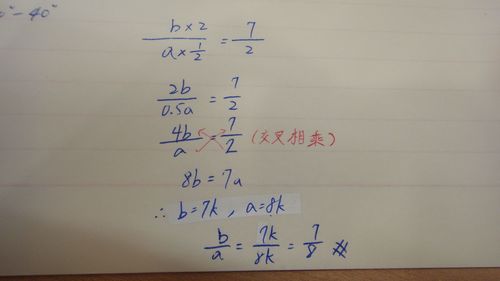 0° - 40°
b×2 / a×1/2 = 7/2
2b / 0.5a = 7/2
4b / a = 7/2 (交叉相乘)
8b = 7a
∴ b=7k , a=8k
b/a = 7k/8k = 7/8 #